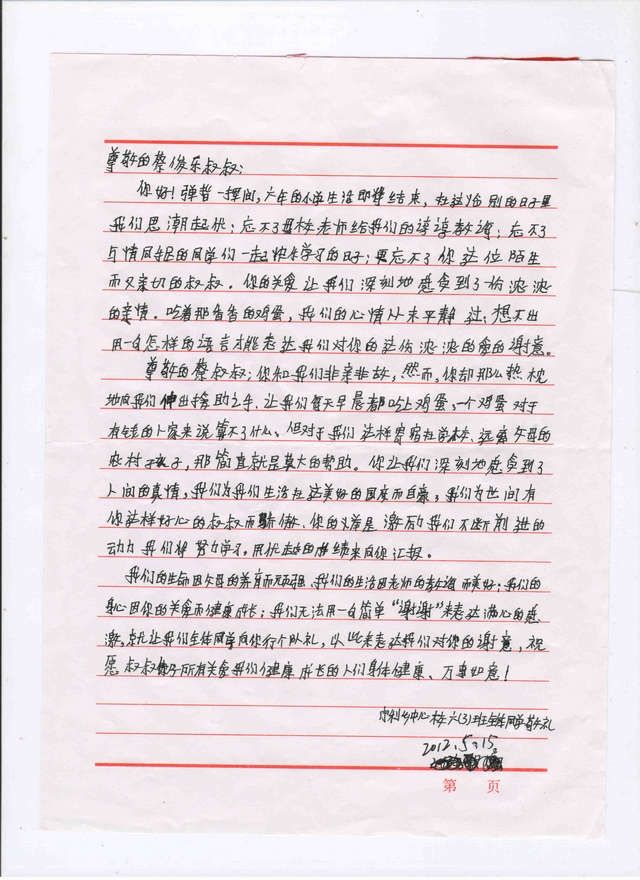 尊敬的蔡俊东叔叔:
你好!弹指一挥间,六年的小学生活即将结束,在这临别的日子里
我们思潮起伏;忘不了母校老师给我们的谆谆教诲;忘不了
与情同手足的同学们一起快乐学习的日子;更忘不了你这位陌生
而又亲切的叔叔。你的关爱让我们深刻地感受到了一份浓浓
的亲情。吃着那香香的鸡蛋,我们的心情从未平静过,想不出
用一句怎样的语言才能表达我们对你的这份浓浓的爱的谢意。
尊敬的蔡叔叔:你和我们非亲非故,然而,你却那么热忱
地向我们伸出援助之手、让我们每天早晨都吃上鸡蛋,一个鸡蛋对于
有钱的人家来说算不了什么、但对于我们这样寄宿在学校、远离父母的
农村孩子,那简直就是莫大的帮助。你让我们深刻地感受到了
人间的真情,我们为我们生活在这美好的国度而自豪;我们为世间有
你这样好心的叔叔而骄傲、你的义举是激励我们不断前进的
动力我们将努力学习,用优越的成绩来向你汇报。
我们的生命因父母的养育而顽强、我们的生活因老师的教诲而美好;我们的
身心因你的关爱而健康成长;我们无法用一句简单“谢谢”来表达满心的感
激,就让我们全体同学向你行个队礼,以此来表达我们对你的谢意,祝
愿叔叔和所有关爱我们健康成长的人们身体健康、万事如意!
乡中心校六(3)班全体同学敬礼
2012.5.15.
第 页